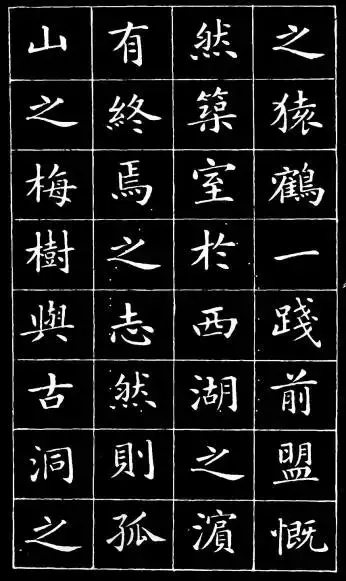 之猿鶴一踐前盟慨
然築室於西湖之濵
有終焉之志然則孤
山之梅樹與古洞之